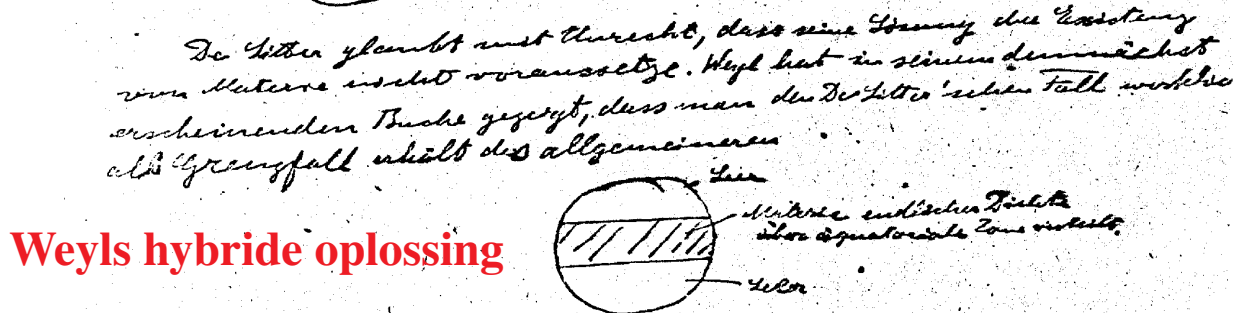 De Sitter glaubt mit Unrecht, dass seine Lösung die Existenz
von Materie nicht voraussetze. Weyl hat in seinem demnächst
erscheinenden Buche gezeigt, dass man den De Sitter'schen Fall wirklich
als Grenzfall erhält des allgemeineren
Leer
Materie endlicher Dichte
über äquatoriale Zone verteilt.
Weyls hybride oplossing
Leer